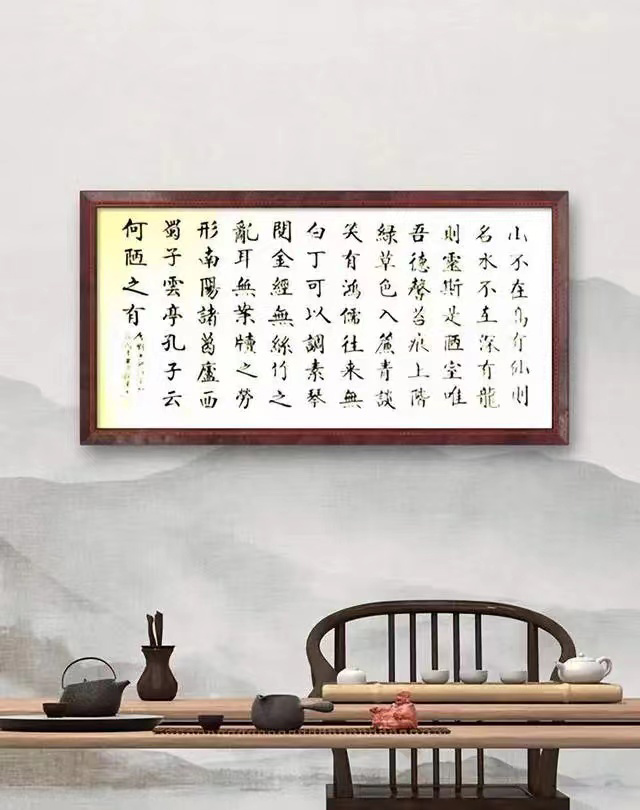 山不在高有仙則
名水不在深有龍
則靈斯是陋室唯
吾德馨苔痕上階
綠草色入簾青談
笑有鴻儒往來無
白丁可以調素琴
閱金經無絲竹之
亂耳無案牘之勞
形南陽諸葛廬西
蜀子雲亭孔子云
何陋之有